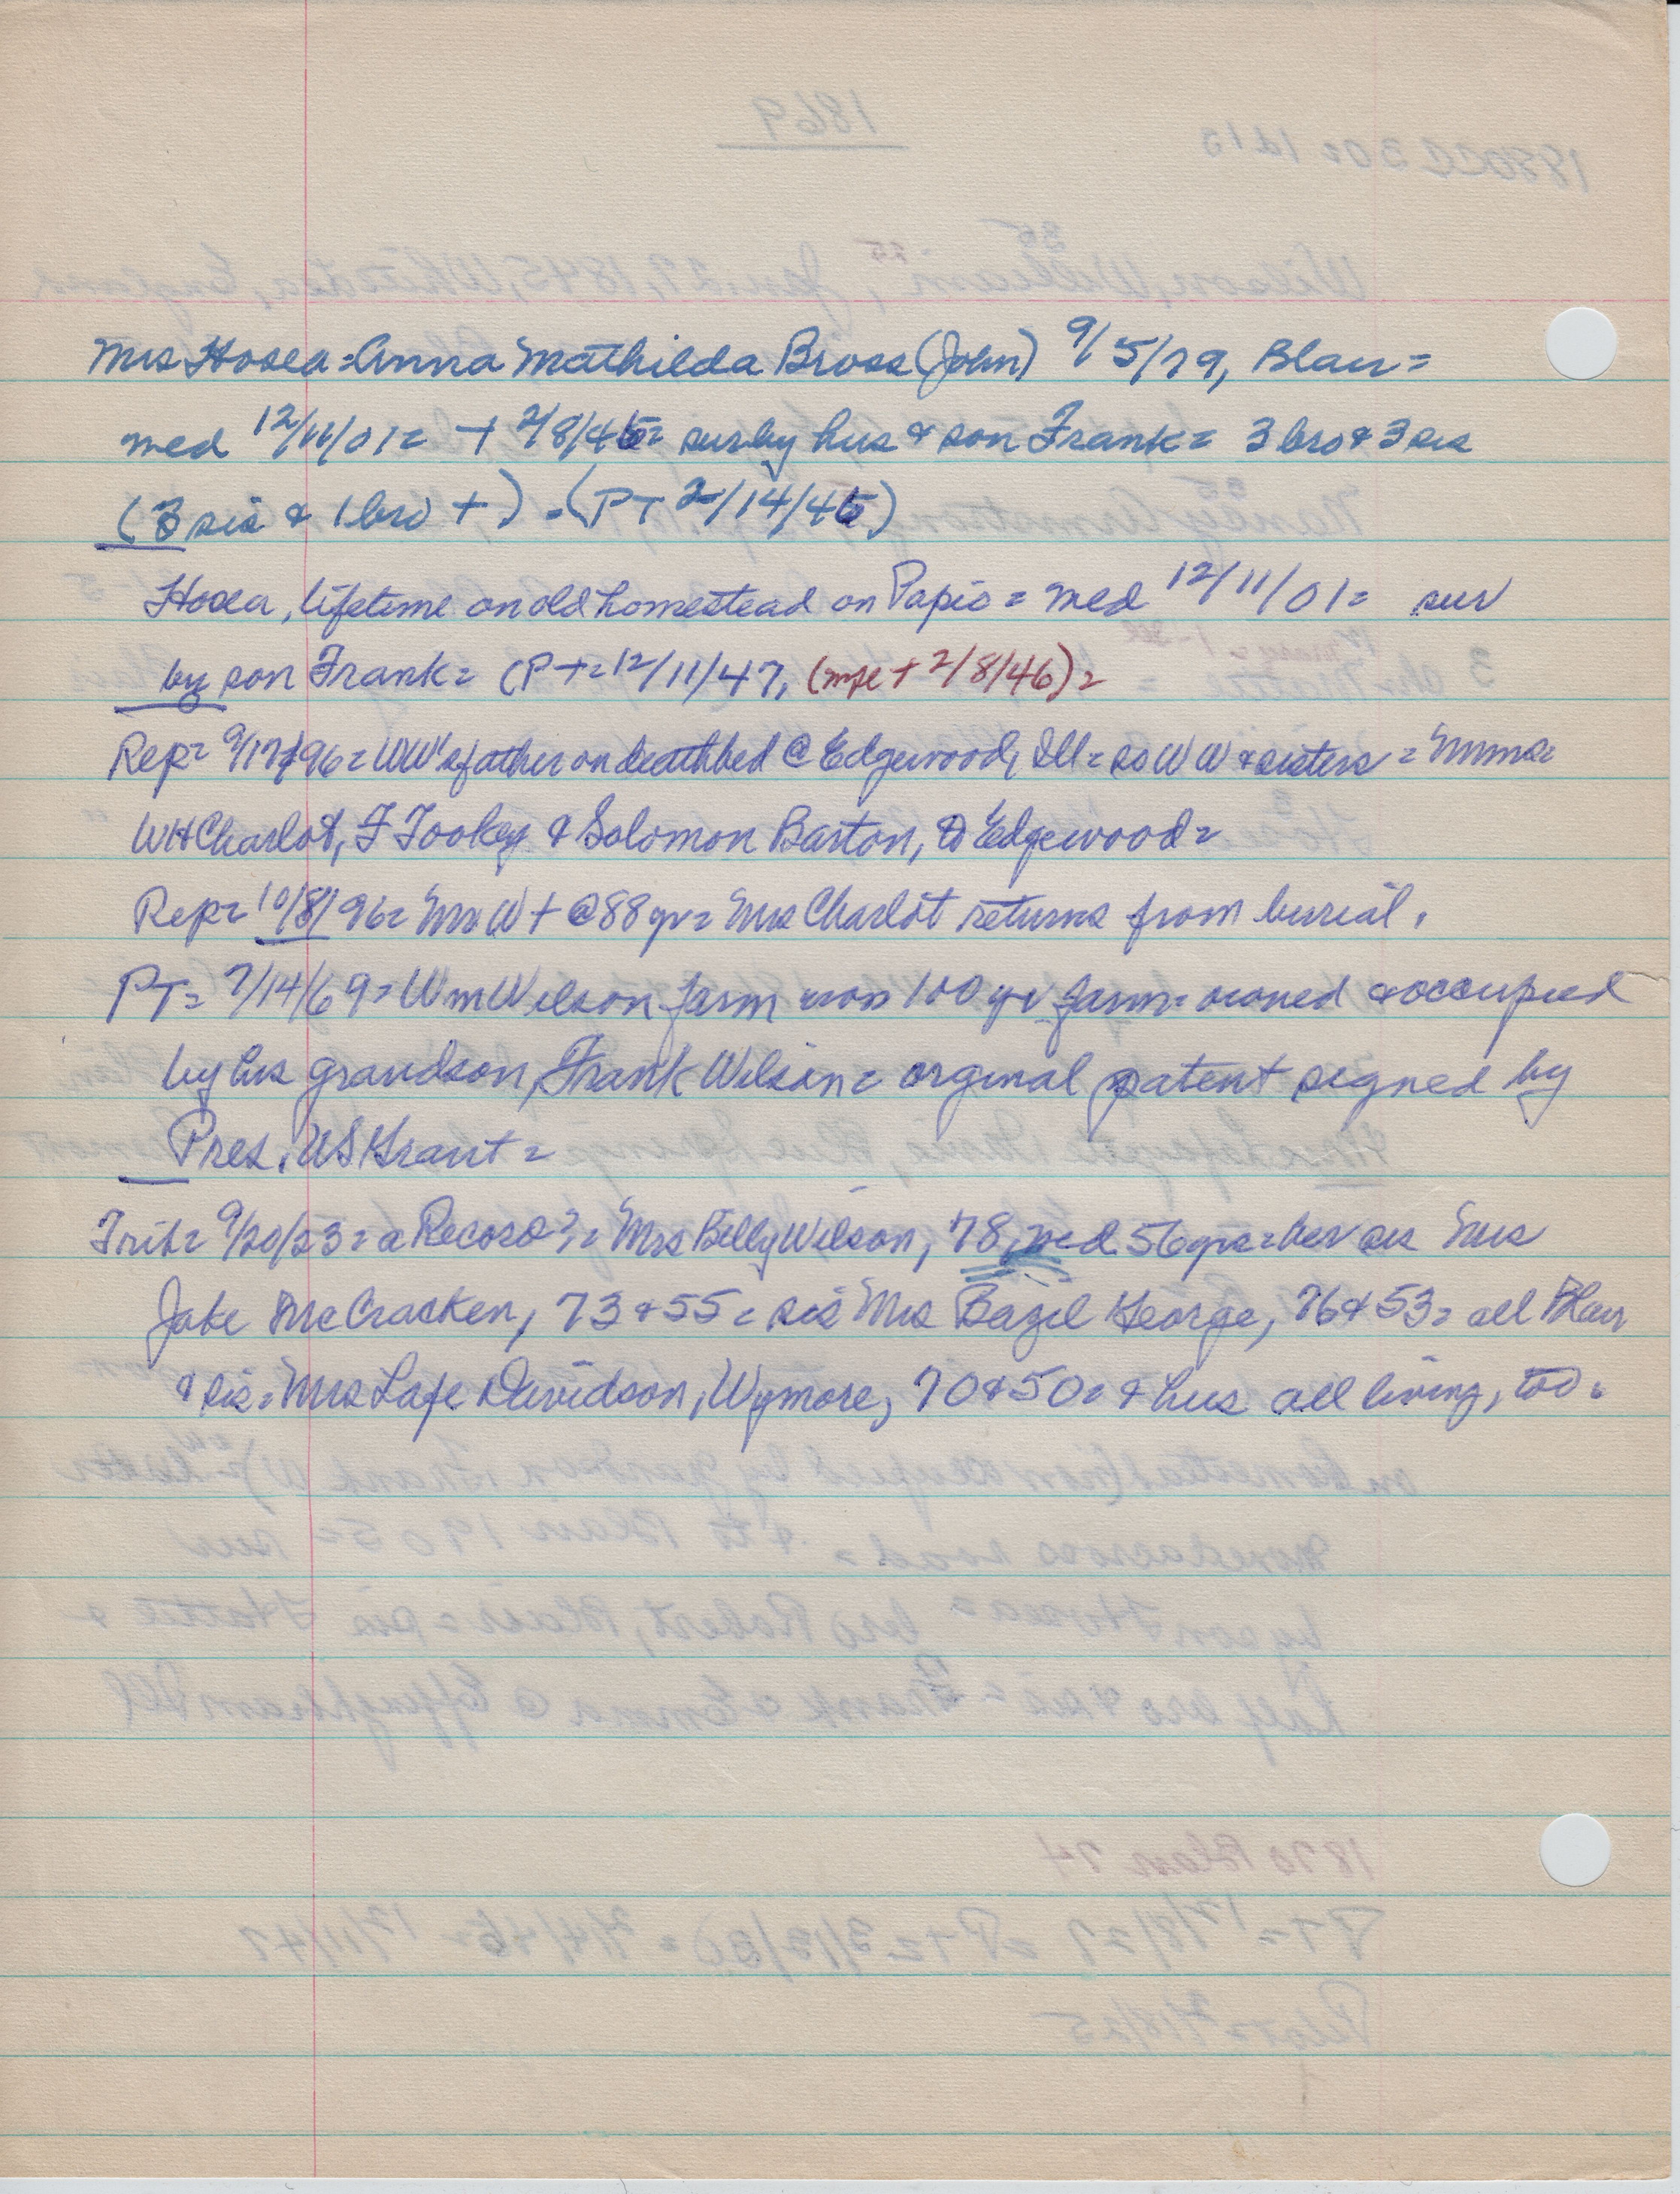 Mrs Hosea = Anna Mathilda Bross (John) 9/5/79, Blair =
med 12/11/01 = + 2/8/46 = sur by hus & son Frank = 3 bro & 3 sis
(3 sis & 1 bro +) - (PT 2/14/46)
Hosea, lifetime on old homestead on Papio = med 12/11/01 = sur
by son Frank = (PT = 12/11/47, (mse + 2/8/46) =
Rep = 9/17/96 = WW's father on deathbed @ Edgewood, Ill = so WW & sisters = Mmes
WH Charlot, F Tookey & Solomon Barton, to Edgewood =
Rep = 10/8/96 = Mr W + @ 88 yr = Mrs Charlot returns from burial.
PT = 7/14/69 = Wm Wilson farm now 100 yr farm = owned & occupied
by his grandson, Frank Wilson = orginal patent signed by
Pres. US Grant =
Trib = 9/20/23 = a Record? = Mrs Billy Wilson, 78, med 56 yrs = her sis Mrs
Jake McCracken, 73 & 55 = sis Mrs Bazil George, 76 & 53 = all Blair
& sis = Mrs Lafe Davidson, Wymore, 70 & 50 = & hus all living, too.